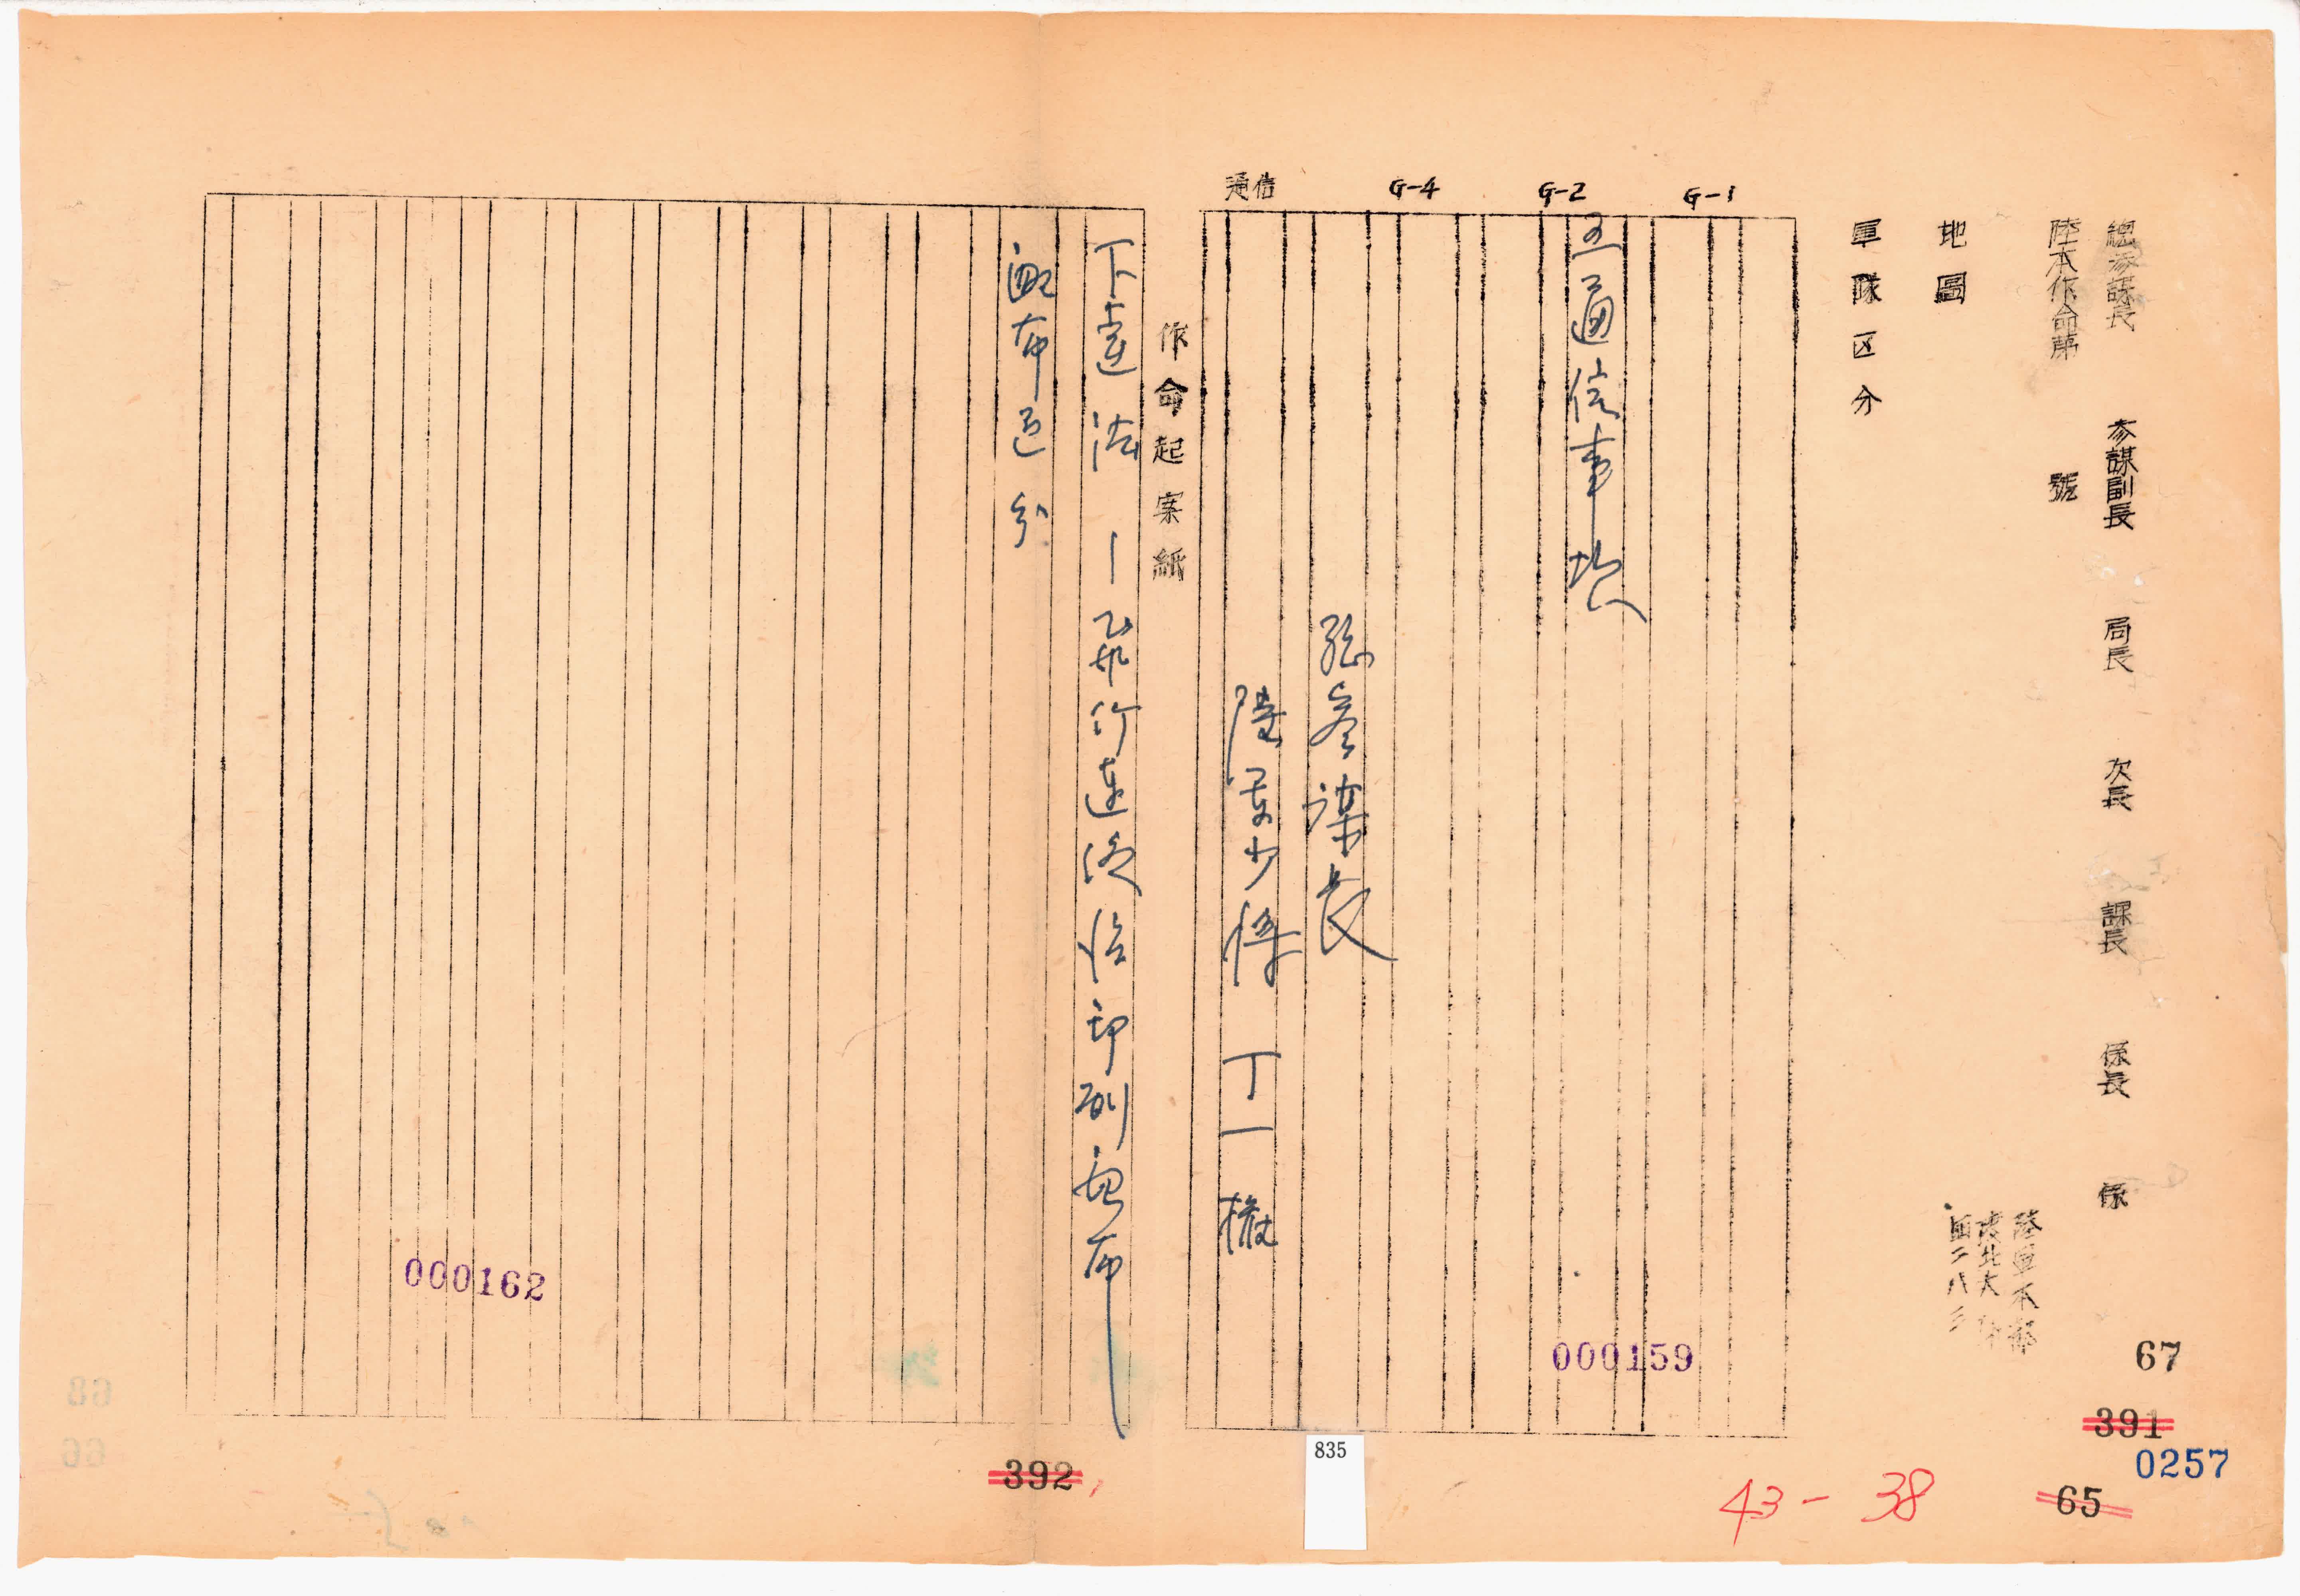 總參謀長 參謀副長 局長 次長 課長 係長 係
陸本作命第 號
陸軍本部
地圖
軍隊区分
G-1
G-2
G-4
通信
五 通信事項
總參謀長
陸軍少將 丁一權
作命起案紙
下達法 — 飛行達後
印刷配布
配布區分
000162
000159
67
391
0257
65
43-38
392
835